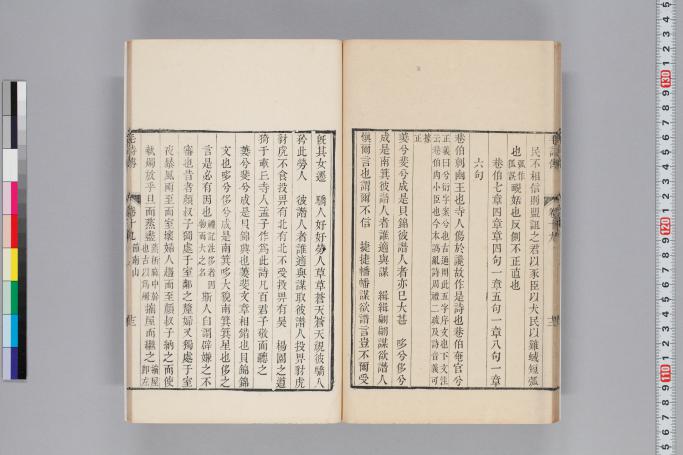 民不相信則盟詛之君以豕臣以犬民以雞蜮短弧
也 弧作狐誤 靦姡也反側不正直也
巷伯七章四章章四句一章五句一章八句一章
六句
巷伯刺幽王也寺人傷於讒故作是詩也巷伯奄官兮
萋兮斐兮成是貝錦彼譖人者亦已大甚 哆兮侈兮
成是南箕彼譖人者誰適與謀 緝緝翩翩謀欲譖人
慎爾言也謂爾不信 捷捷幡幡謀欲譖言豈不爾受
既其女遷 驕人好好勞人草草蒼天蒼天視彼驕人
矜此勞人 彼譖人者誰適與謀取彼譖人投畀豺虎
豺虎不食投畀有北有北不受投畀有昊 楊園之道
猗于畝丘寺人孟子作為此詩凡百君子敬而聽之
萋兮斐兮成是貝錦興也萋斐文章相錯也貝錦錦
文也哆兮侈兮成是南箕哆大貌南箕箕星也侈之
言是必有因也 斯人自謂辟嫌之不
審也昔者顏叔子獨處于室鄰之釐婦又獨處于室
夜暴風雨至而室壞婦人趨而至顏叔子納之而使
執燭放乎旦而蒸盡 縮屋而繼之